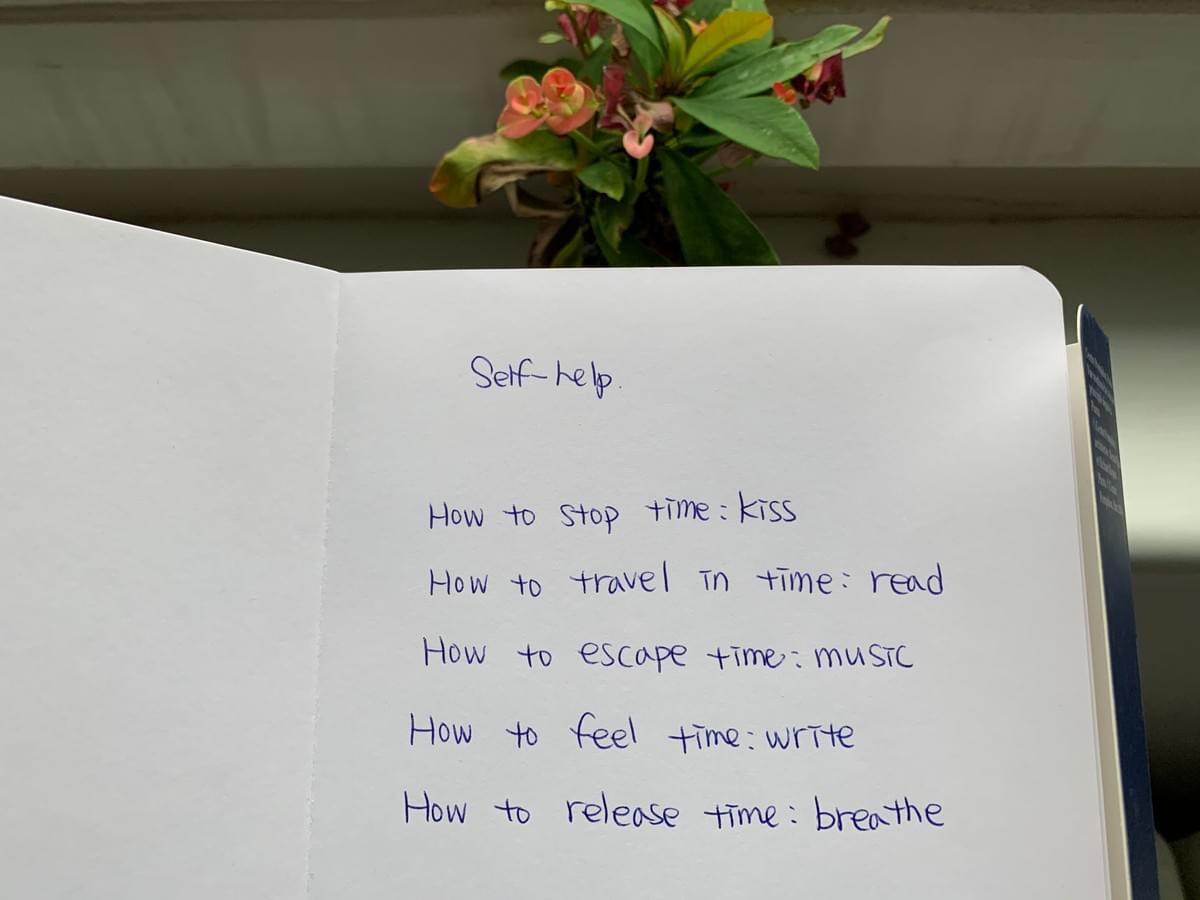 Self-help.
How to stop time: kiss
How to travel in time: read
How to escape time: music
How to feel time: write
How to release time: breathe